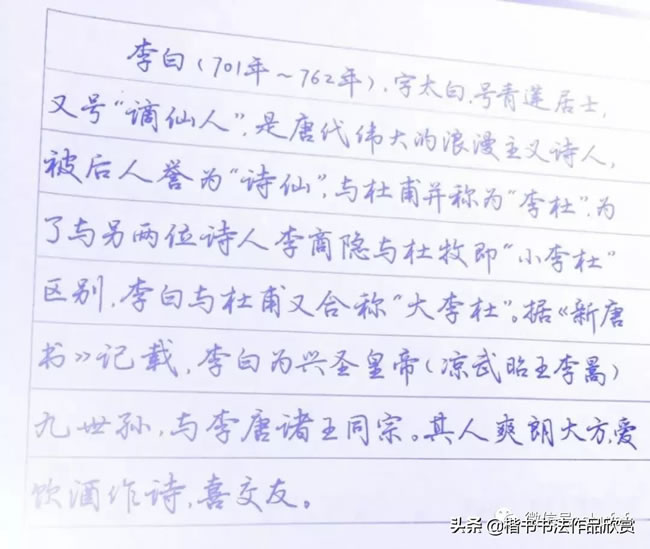 李白（701年～762年），字太白，号青莲居士，
又号“谪仙人”，是唐代伟大的浪漫主义诗人，
被后人誉为“诗仙”，与杜甫并称为“李杜”，为
了与另两位诗人李商隐与杜牧即“小李杜”
区别，李白与杜甫又合称“大李杜”。据《新唐
书》记载，李白为兴圣皇帝（凉武昭王李暠）
九世孙，与李唐诸王同宗。其人爽朗大方，爱
饮酒作诗，喜交友。
微信号
头条 @楷书书法作品欣赏